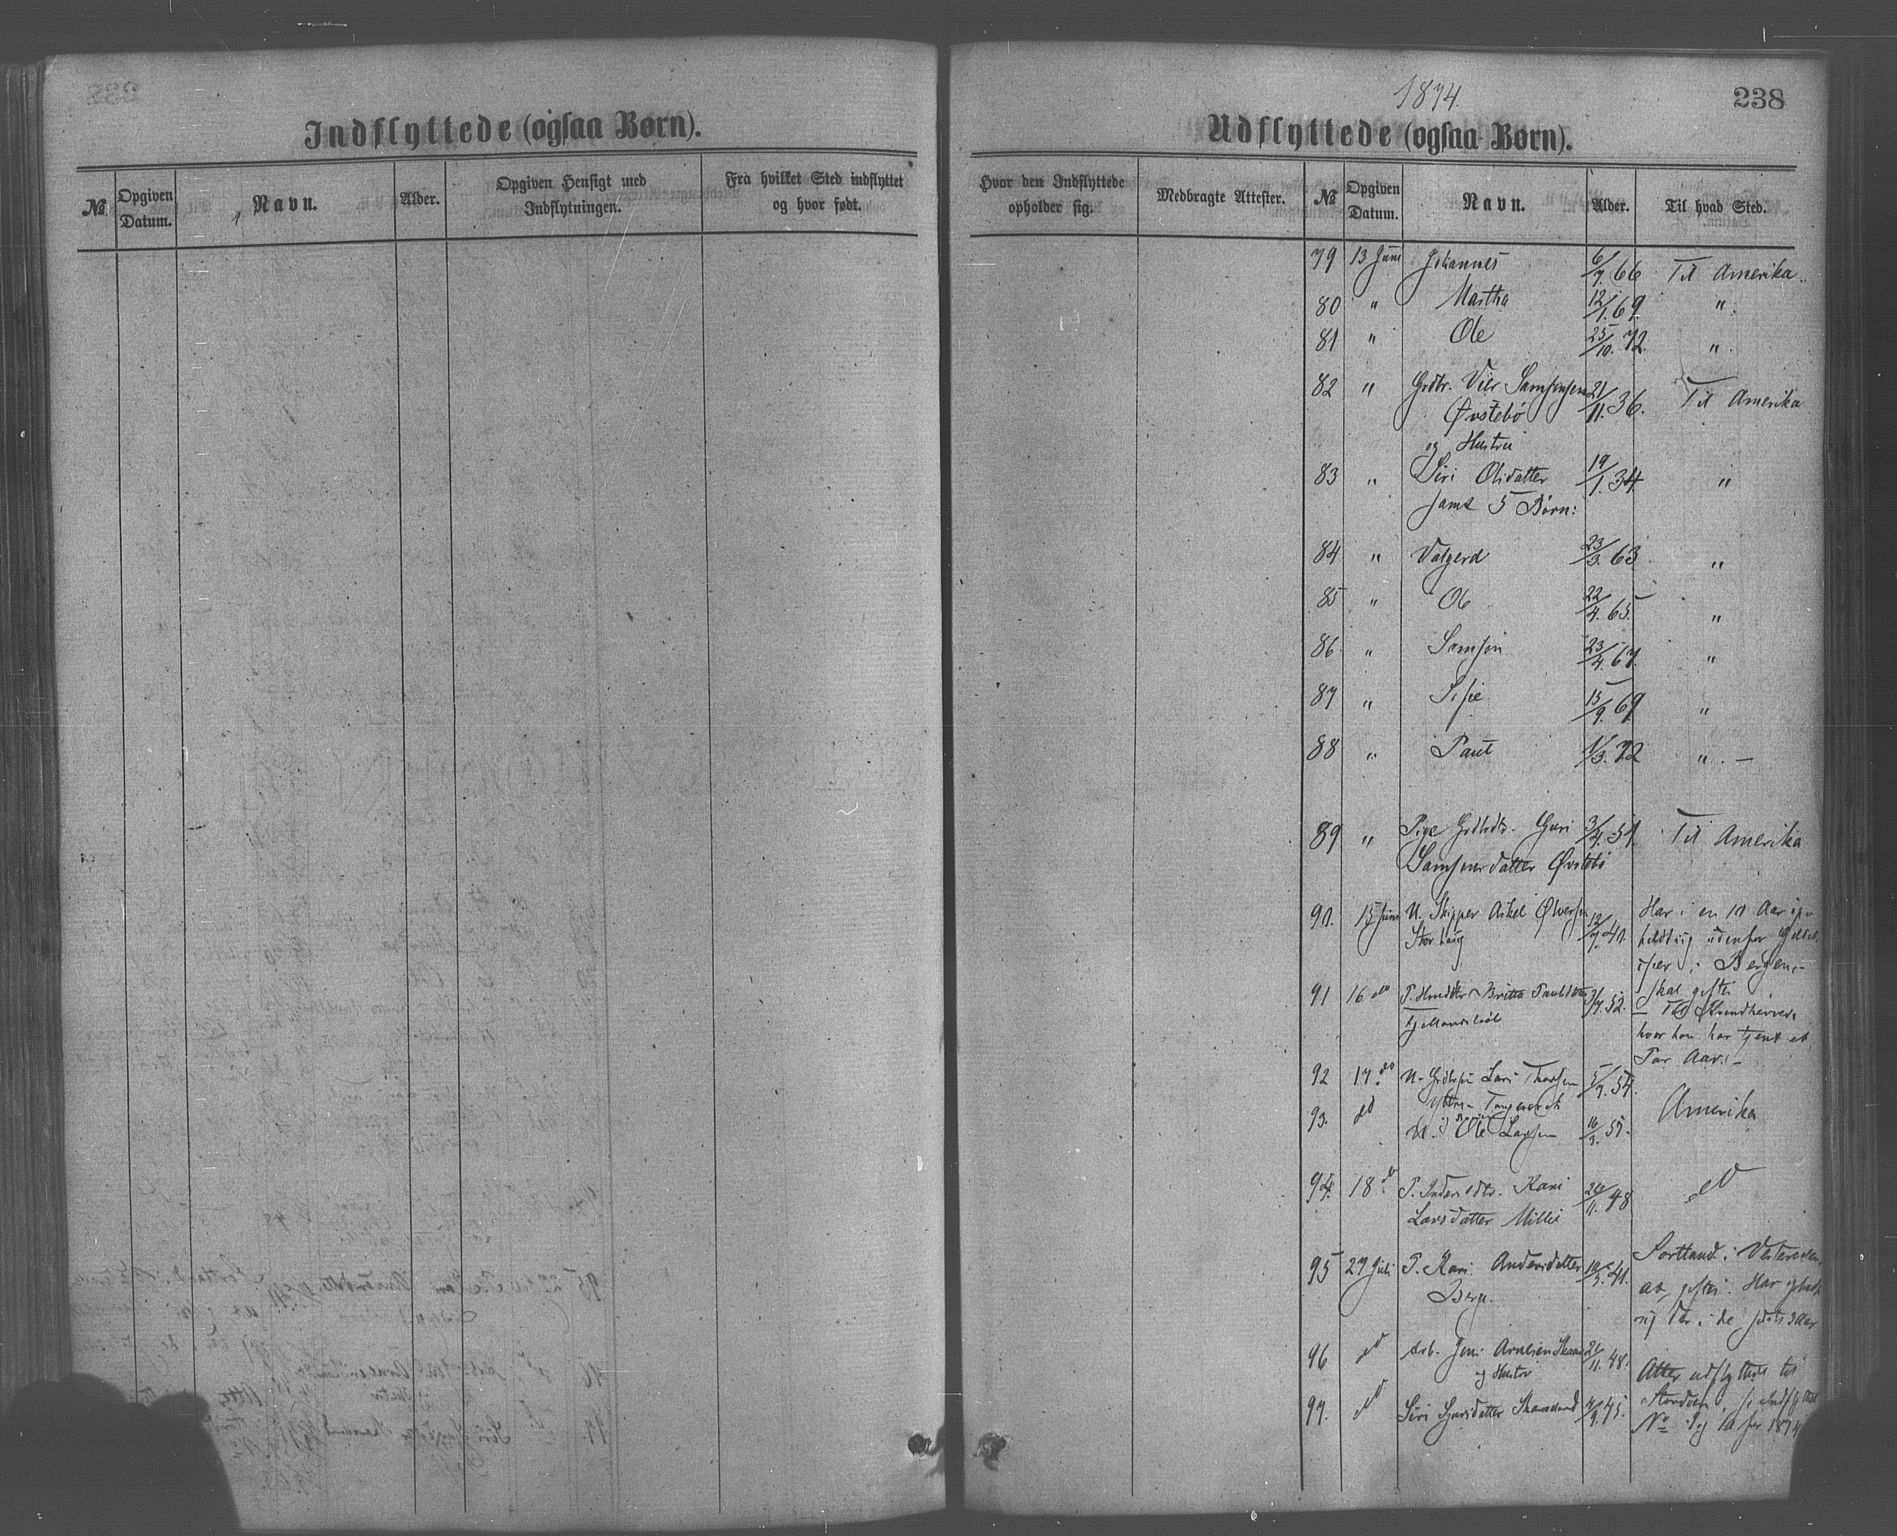 Indflyttede (ogsaa Børn).
№
Opgiven Datum.
Navn.
Alder.
Opgiven Hensigt med Indflytningen.
Fra hvilket Sted indflyttet og hvor født.
1874.
238
Udflyttede (ogsaa Børn).
Hvor den Indflyttede opholder sig.
Medbragte Attester.
№
Opgiven Datum.
Navn.
Alder.
Til hvad Sted.
79 13 Juni Johannes 6/7. 66 Til Amerika.
80 " Martha 12/1. 69. "
81 " Ole 25/10. 72. "
82 " Grdbr. Samsonsen 21/11. 36. Til Amerika
Øvstebö
og Hustru
83 " Siri Olsdatter 19/1. 34 "
samt 5 Børn:
84 " Valgerd 23/3. 63 "
85 " Ole 22/4. 65. "
86 " Samson 23/4. 67. "
87 " 15/9. 69 "
88 " Paul 1/3. 72 " . —
89 " Pige Guri 3/4. 51. Til Amerika
Samsonsdatter Øvstebö
90. 15 Juni U. Skipper Askel 12/7. 40. Har i en 10 Aar op-
Storhaug holdt sig udenfor
i Bergen,
91 16 do Britta 3/7. 52. skal gifte
hvor hun har tjent et
Par Aar. —
92 17. do U. Lars 5/7. 54.
Ytre Amerika
93. do Ole Larsen 16/3. 55.
94. 18 do P. Kari 26/11. 48 do
Larsdatter Millie
95 27 Juli P. Kari Andersdatter 10/3. 41. Sortland i Vesteraalen,
Berge. at gifte. Har opholdt
sig der i de sidste 3 Aar
96 do Arb. Arnesen 26/11. 48. Atter udflyttede til
og Hustru
97. do Siri 4/9. 45. Indflyttede
№ 9 og 10 for 1874